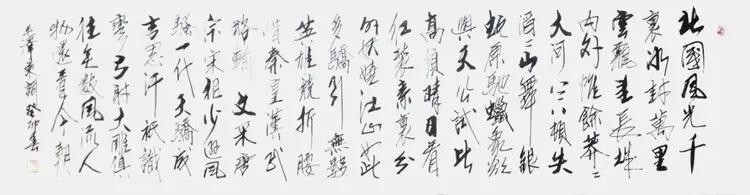 北國風光千
裏冰封萬里
雪飄望長城
内外惟餘莽々
大河上下頓失
滔々山舞銀
蛇原馳蠟象欲
與天公試比
高須晴日看
紅裝素裹分
外妖嬈江山如此
多嬌引無數
英雄競折腰
惜秦皇漢武
略輸文采唐
宗宋祖少遜風
騷一代天驕成
吉思汗祗識
彎弓射大雕俱
往矣數風流人
物還看今朝
毛澤東詞癸卯春